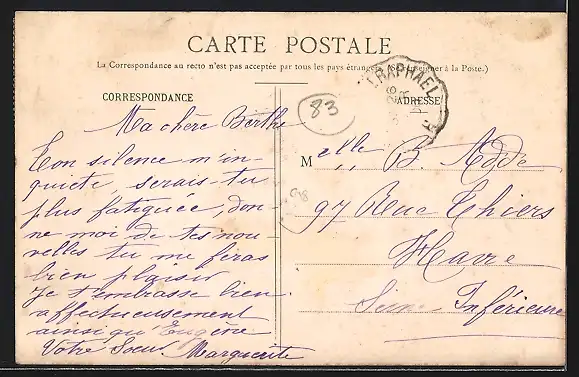 CARTE POSTALE
La Correspondance au recto n'est pas acceptée par tous les pays étrangers (Se renseigner à la Poste.)
CORRESPONDANCE
ADRESSE
RAPHAEL
83
98
Ma chère Berthe
Ton silence m'in-
quiete, serais-tu
plus fatiguée, don-
ne moi de tes nou-
velles tu me feras
bien plaisir
Je t'embrasse bien
affectueusement
ainsi qu'Eugène.
Votre Soeur Marguerite
Melle B. Adde
97 Rue Thiers
Havre
Seine Inférieure